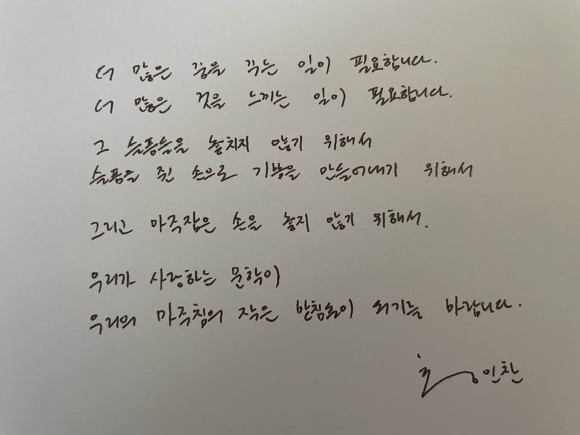 더 많은 꿈을 꾸는 일이 필요합니다.
더 많은 것을 느끼는 일이 필요합니다.
그 슬픔들을 놓치지 않기 위해서
슬픔을 쥔 손으로 기쁨을 만들어내기 위해서
그리고 마주잡은 손을 놓지 않기 위해서.
우리가 사랑하는 문학이
우리의 마주침의 작은 받침돌이 되기를 바랍니다.
황인찬